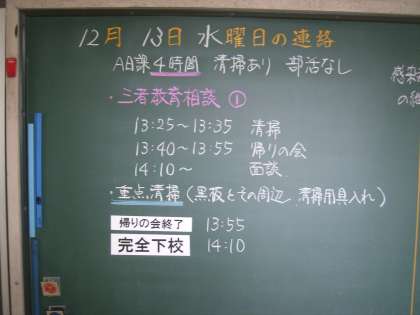 12月 13日 水曜日の連絡
A日課4時間 清掃あり 部活なし
・三者教育相談 ①
13:25～13:35 清掃
13:40～13:55 帰りの会
14:10～ 面談
・重点清掃(黒板とその周辺 清掃用具入れ)
帰りの会終了 13:55
完全下校 14:10
感染
の